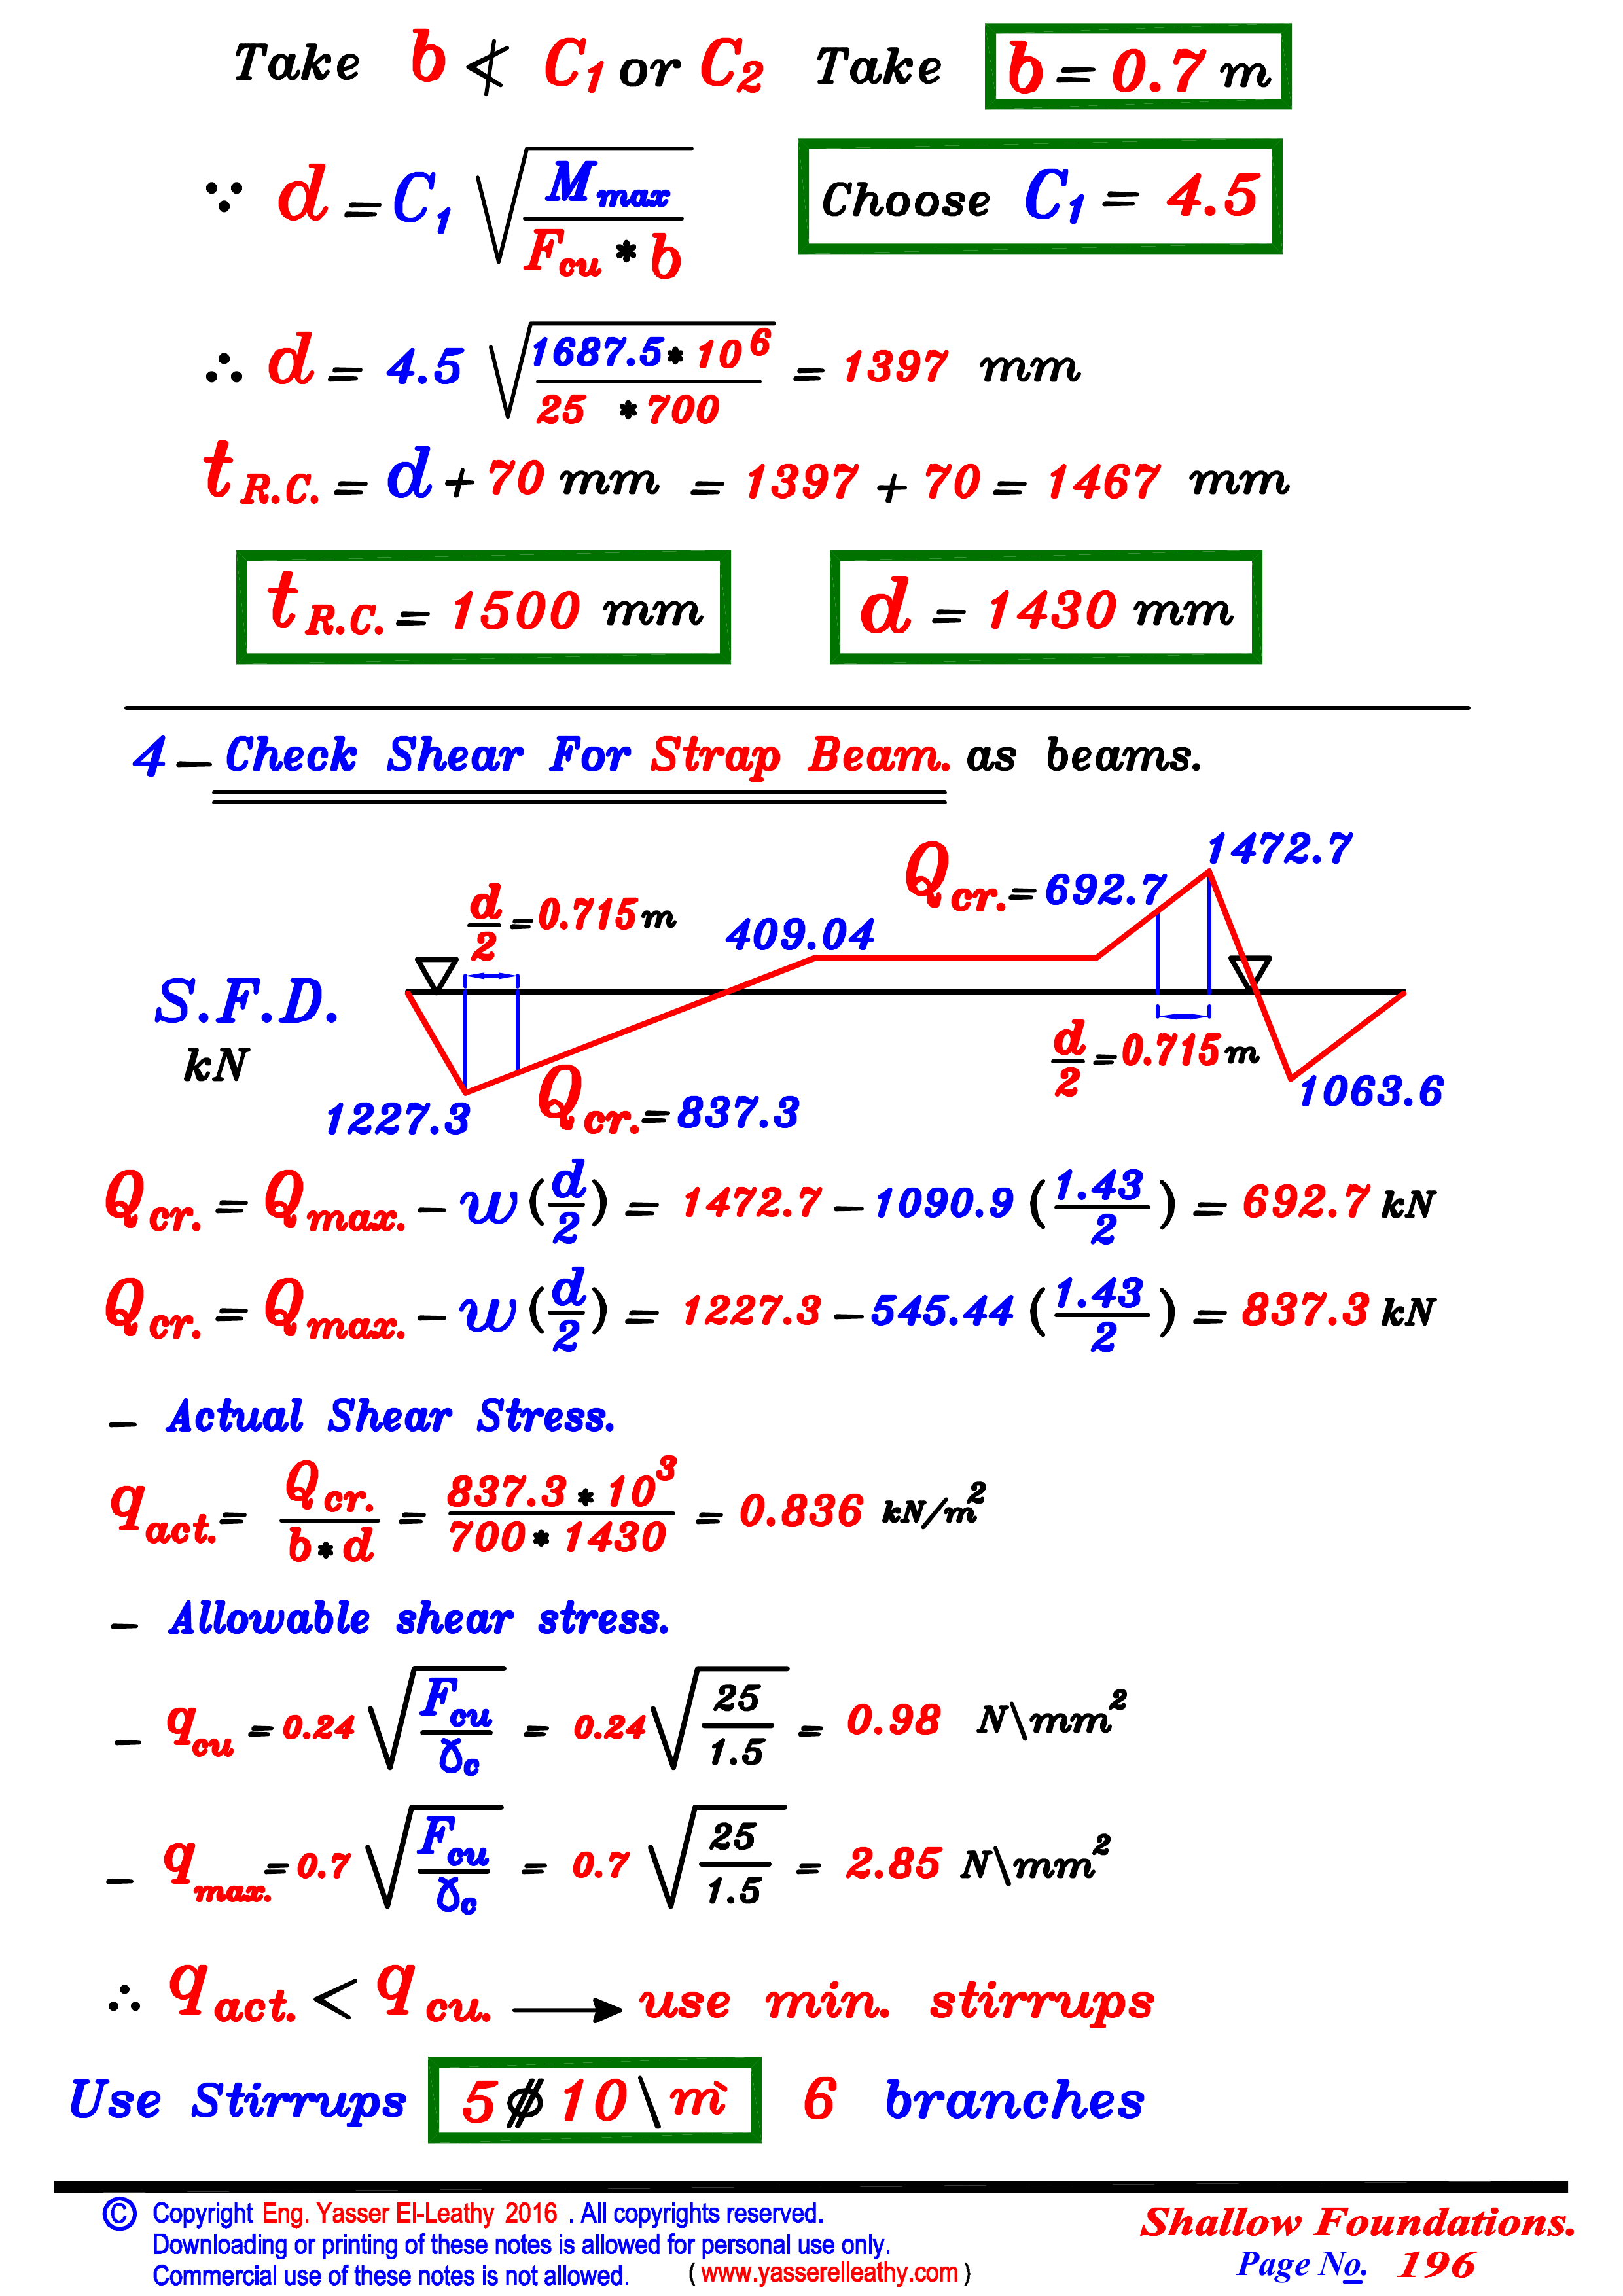 Take b ≮ C1 or C2 Take b = 0.7 m
∵ d = C1 √(Mmax / (Fcu * b)) Choose C1 = 4.5
∴ d = 4.5 √(1687.5 * 10^6 / (25 * 700)) = 1397 mm
t R.C. = d + 70 mm = 1397 + 70 = 1467 mm
t R.C. = 1500 mm d = 1430 mm
4 – Check Shear For Strap Beam. as beams.
1472.7
Qcr. = 692.7
d/2 = 0.715 m
409.04
S.F.D.
kN
d/2 = 0.715 m
1063.6
1227.3
Qcr. = 837.3
Qcr. = Qmax. – w (d/2) = 1472.7 – 1090.9 (1.43/2) = 692.7 kN
Qcr. = Qmax. – w (d/2) = 1227.3 – 545.44 (1.43/2) = 837.3 kN
– Actual Shear Stress.
q act. = Qcr. / (b * d) = 837.3 * 10^3 / (700 * 1430) = 0.836 kN/m²
– Allowable shear stress.
– qcu = 0.24 √(Fcu / δc) = 0.24 √(25 / 1.5) = 0.98 N\mm²
– qmax. = 0.7 √(Fcu / δc) = 0.7 √(25 / 1.5) = 2.85 N\mm²
∴ q act. < q cu. → use min. stirrups
Use Stirrups 5 ϕ 10 \ m̀ 6 branches
© Copyright Eng. Yasser El-Leathy 2016 . All copyrights reserved.
Downloading or printing of these notes is allowed for personal use only.
Commercial use of these notes is not allowed. ( www.yasserelleathy.com )
Shallow Foundations.
Page No. 196